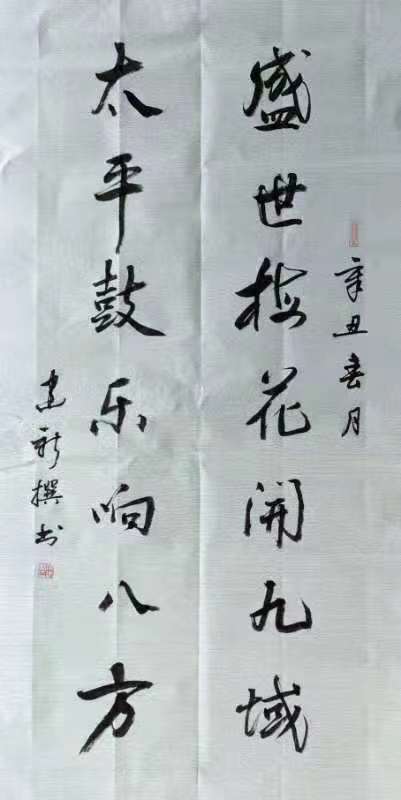 辛丑春月
盛世梅花開九域
太平鼓乐响八方
建新撰书